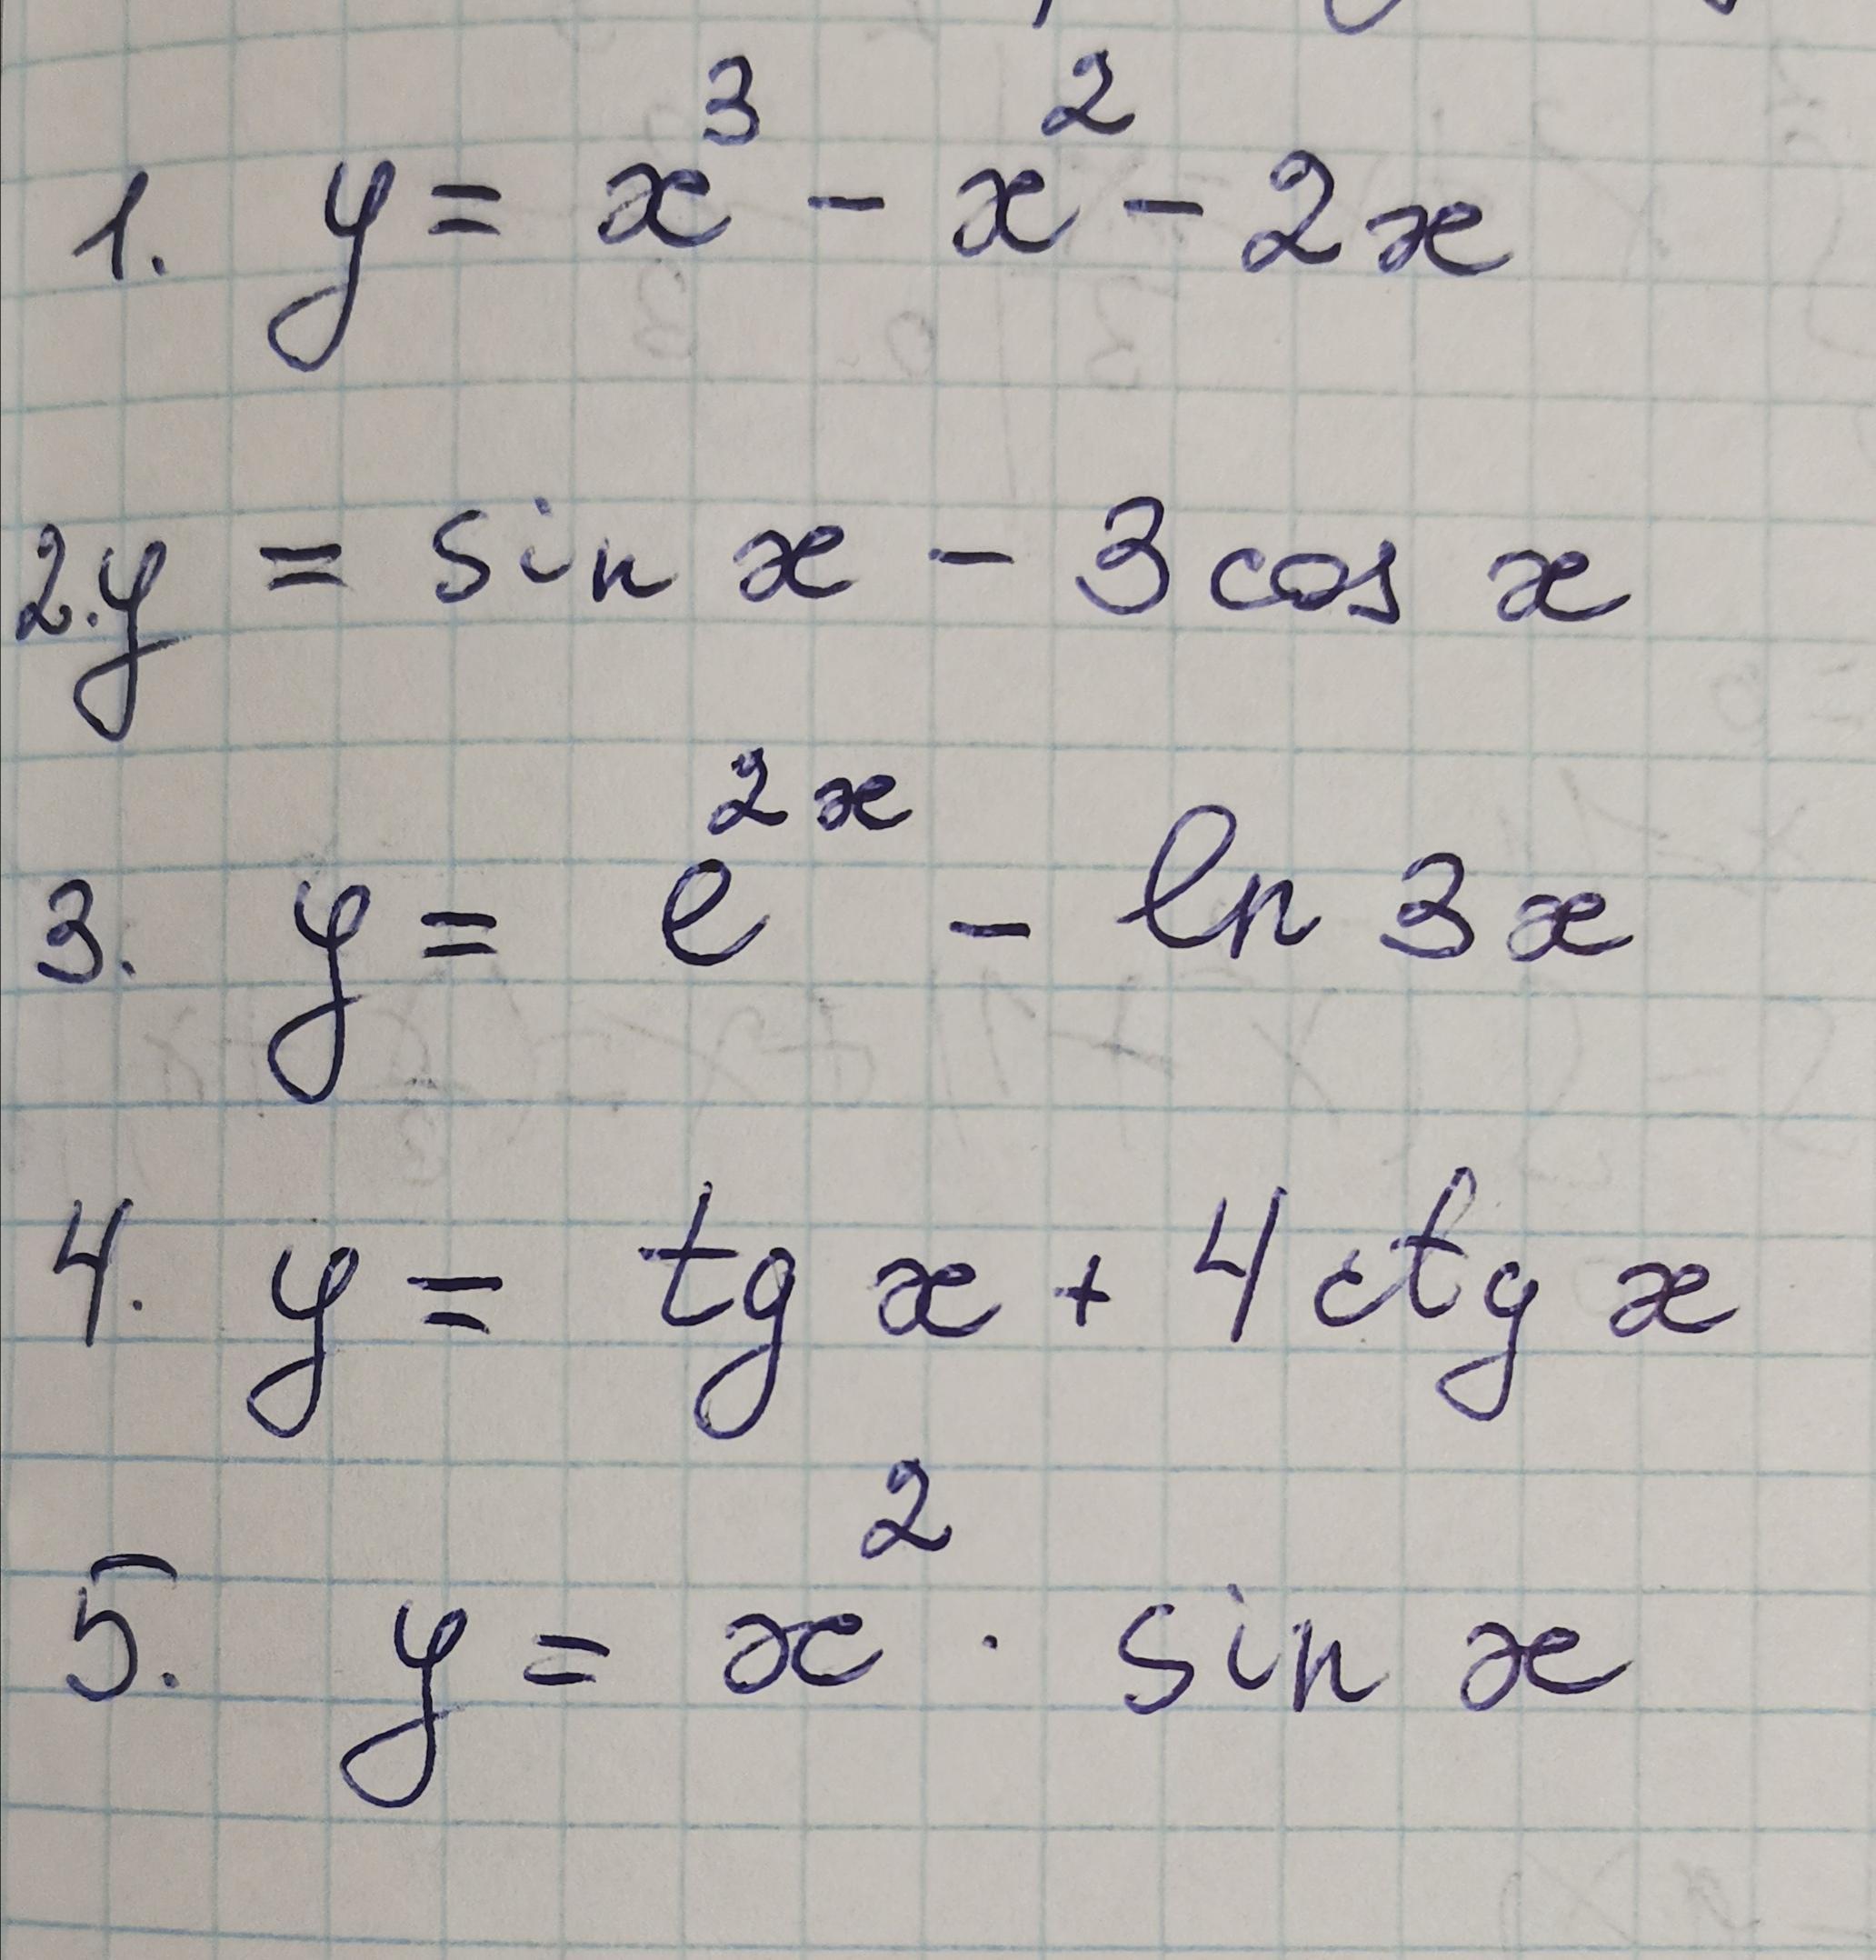 1. y = x³ - x² - 2x
2. y = sin x - 3 cos x
3. y = e²ˣ - ln 3x
4. y = tg x + 4 ctg x
5. y = x² · sin x